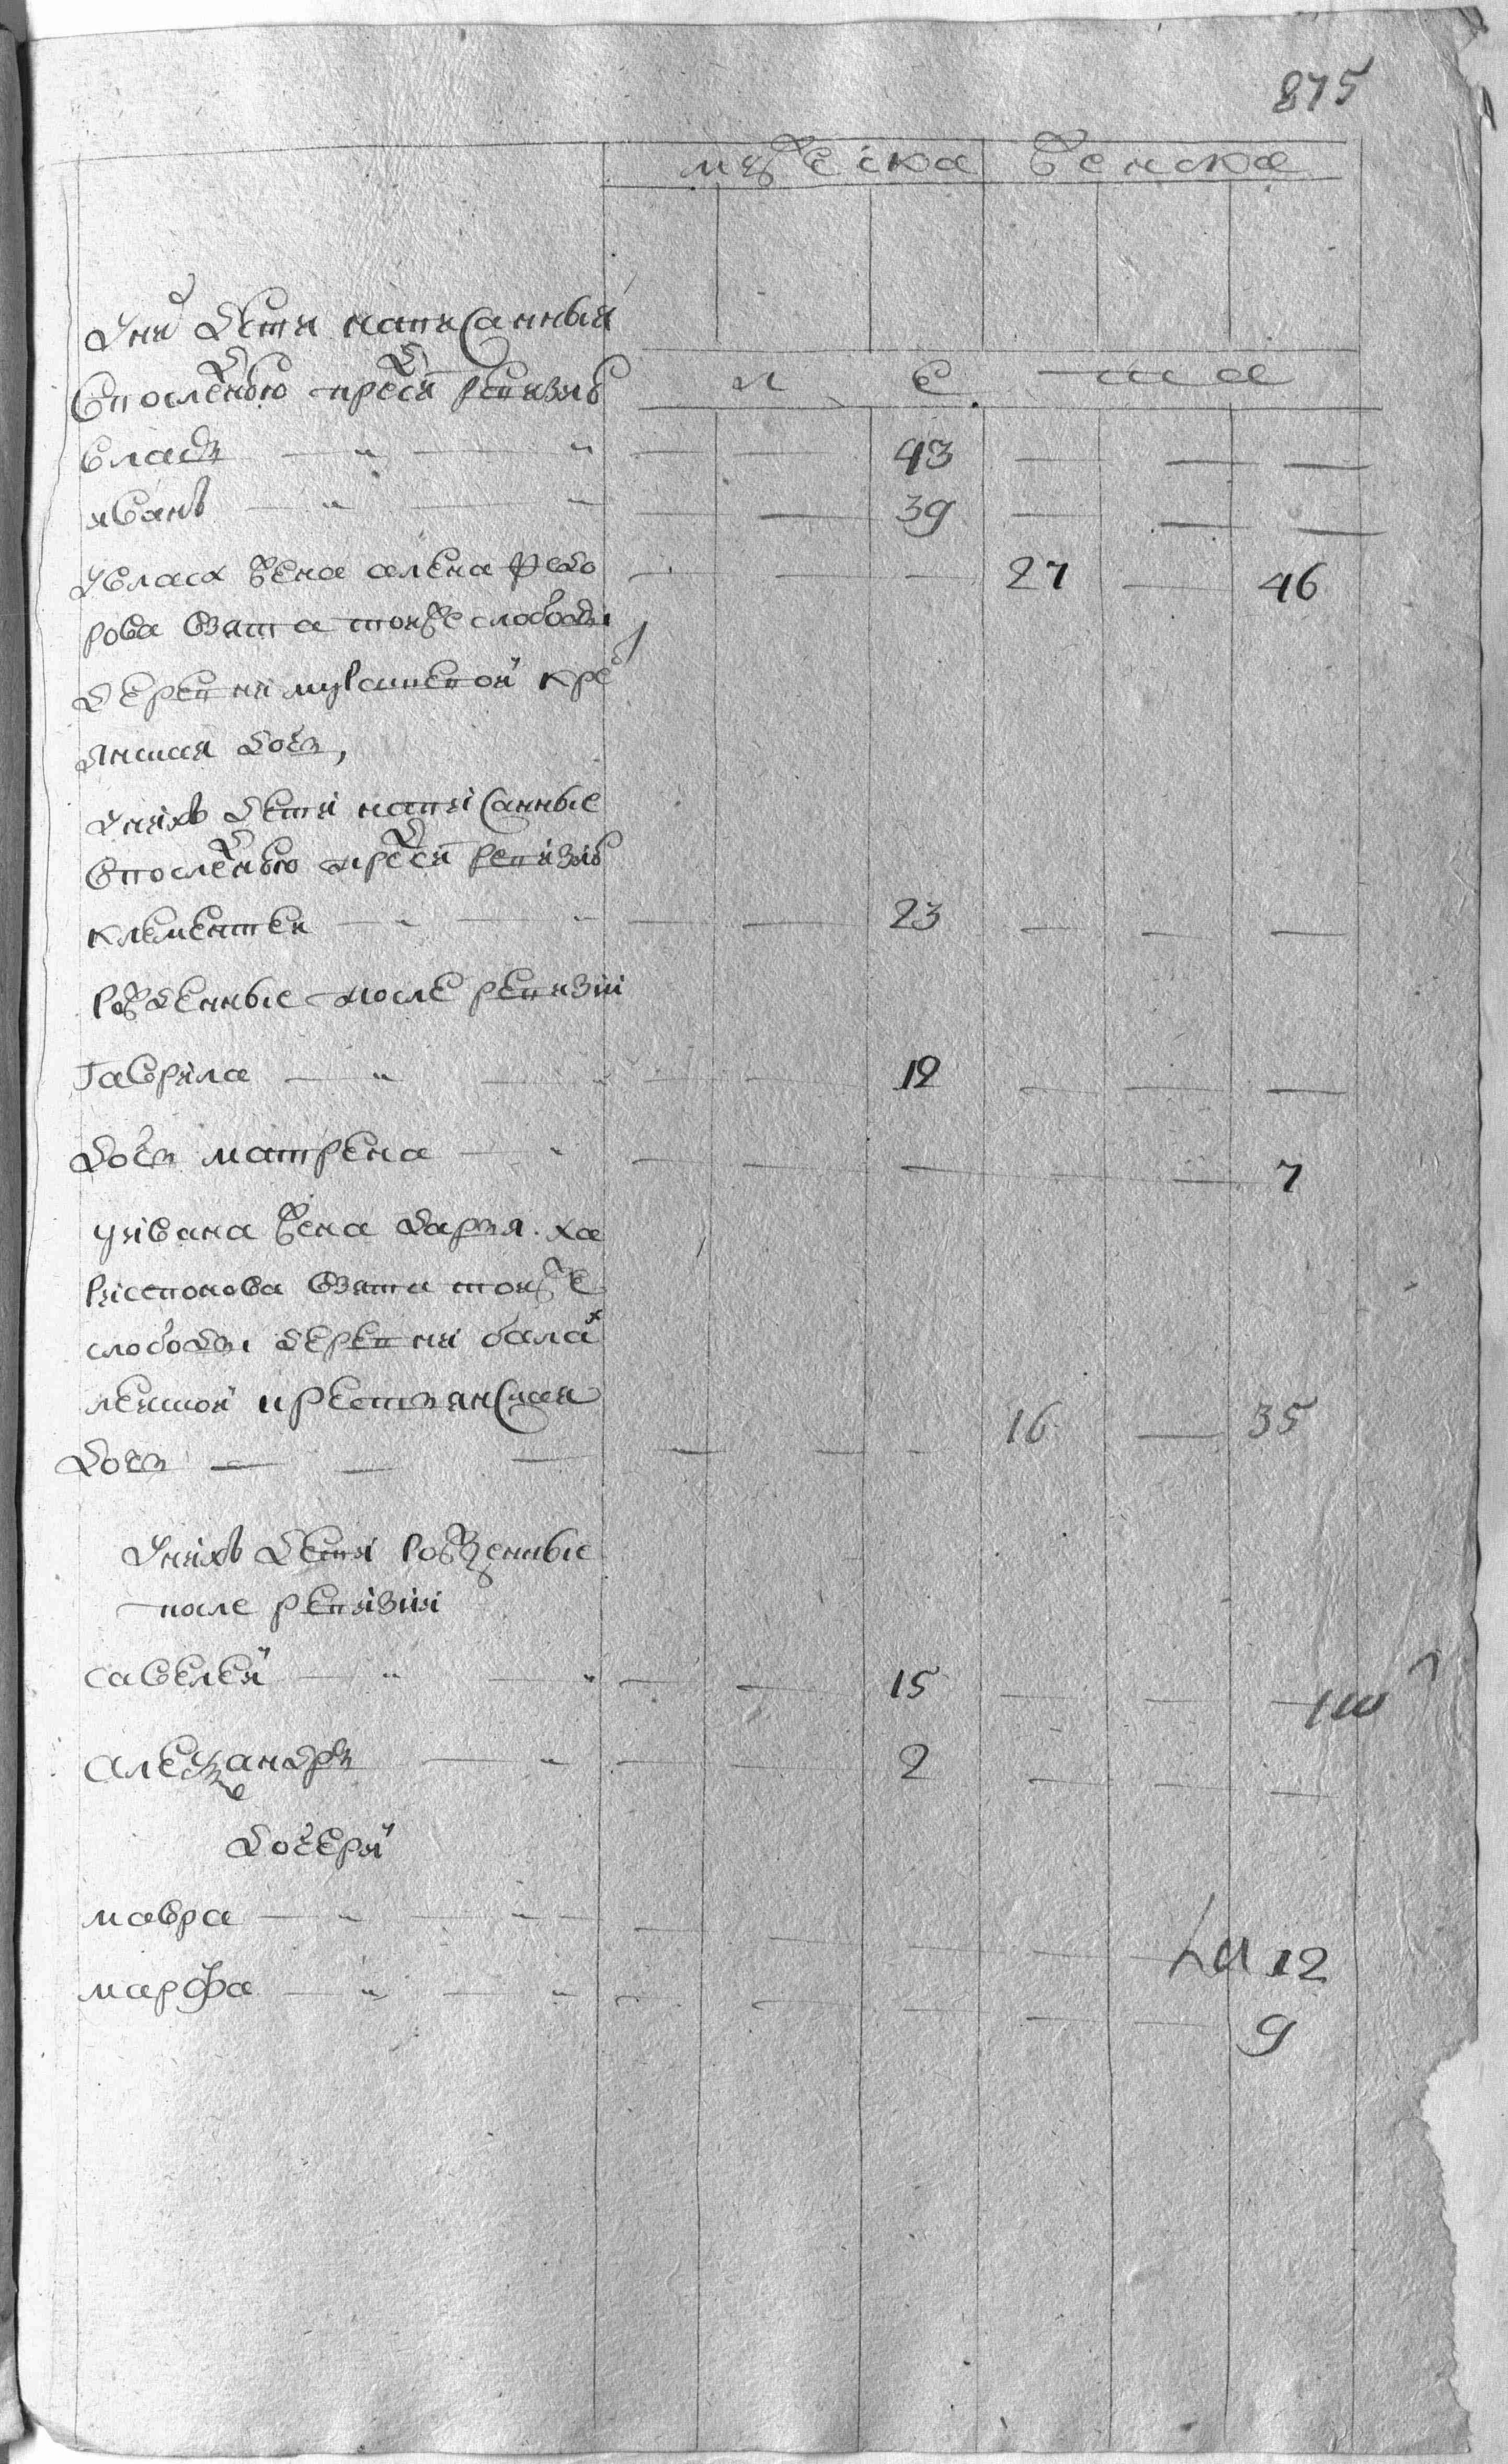 875
мужеска женска
Унихъ дети написанныя
впоследнюю предсеи ревизию
л е та
власъ 43
иванъ 39
Увласа жена алена федо 27 46
рова взята тоижъ слободы
деревни мувашевой кре
янская дочь,
Унихъ дети написанные
впоследнюю предсеи ревизию
клементеи 23
рожденные после ревизии
Гаврила 12
дочь матрена 7
уивана жена дарья ха
ритонова взята тоиже
слободы деревни бала
лешой крестьянская
дочь 16 35
Унихъ дети рожденные
после ревизии
савелей 15
александръ 2
дочери
мавра 12
марфа 9